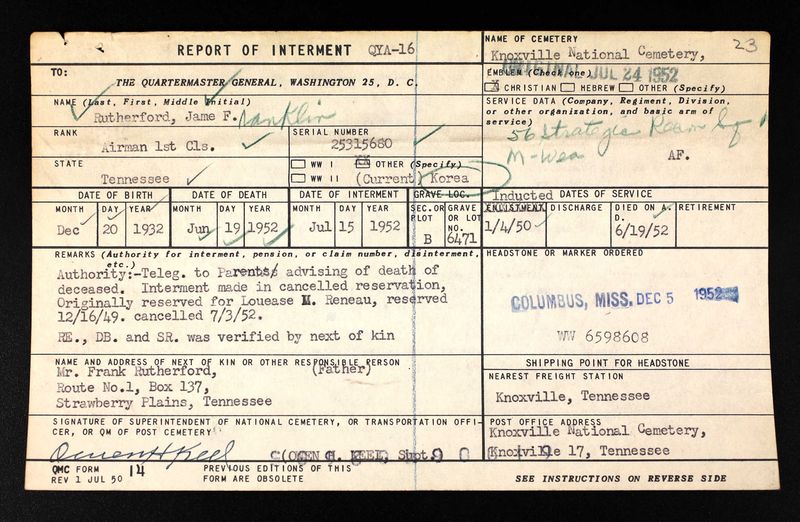 REPORT OF INTERMENT QYA-16
NAME OF CEMETERY
Knoxville National Cemetery,
23
TO:
THE QUARTERMASTER GENERAL, WASHINGTON 25, D. C.
EMBLEM (Check one)
ORIGINAL JUL 24 1952
X CHRISTIAN HEBREW OTHER (Specify)
NAME (Last, First, Middle Initial)
Rutherford, Jame F. ranklin
SERVICE DATA (Company, Regiment, Division, or other organization, and basic arm of service)
56 Strategic Reconn Sq
M-Wea AF.
RANK
Airman 1st Cls.
SERIAL NUMBER
25315680
STATE
Tennessee
WW I X OTHER (Specify)
WW II (Current) Korea
DATE OF BIRTH DATE OF DEATH DATE OF INTERMENT GRAVE LOC. Inducted DATES OF SERVICE
MONTH DAY YEAR MONTH DAY YEAR MONTH DAY YEAR SEC. OR PLOT GRAVE OR LOT NO. ENLISTMENT DISCHARGE DIED ON A. D. RETIREMENT
Dec 20 1932 Jun 19 1952 Jul 15 1952 B 6471 1/4/50 6/19/52
REMARKS (Authority for interment, pension, or claim number, disinterment, etc.)
Authority:-Teleg. to Parents advising of death of
deceased. Interment made in cancelled reservation,
Originally reserved for Louease M. Reneau, reserved
12/16/49. cancelled 7/3/52.
RE., DB. and SR. was verified by next of kin
HEADSTONE OR MARKER ORDERED
COLUMBUS, MISS. DEC 5 1952
WW 6598608
NAME AND ADDRESS OF NEXT OF KIN OR OTHER RESPONSIBLE PERSON
Mr. Frank Rutherford, (Father)
Route No.1, Box 137,
Strawberry Plains, Tennessee
SHIPPING POINT FOR HEADSTONE
NEAREST FREIGHT STATION
Knoxville, Tennessee
SIGNATURE OF SUPERINTENDENT OF NATIONAL CEMETERY, OR TRANSPORTATION OFFI-
CER, OR QM OF POST CEMETERY
Owen H Keel
(OWEN H. KEEL, Supt.
POST OFFICE ADDRESS
Knoxville National Cemetery,
Knoxville 17, Tennessee
QMC FORM 14
REV 1 JUL 50
PREVIOUS EDITIONS OF THIS
FORM ARE OBSOLETE
SEE INSTRUCTIONS ON REVERSE SIDE